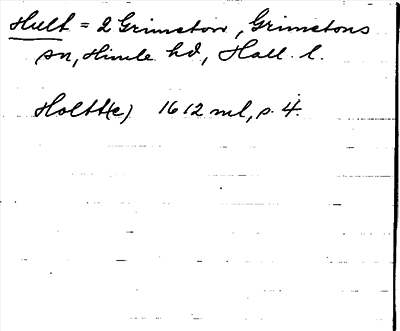 Hult = 2 Grimeton, Grimetons
sn, Himle hd, Hall. l.
Holtt(e) 1612 ml, p. 4.